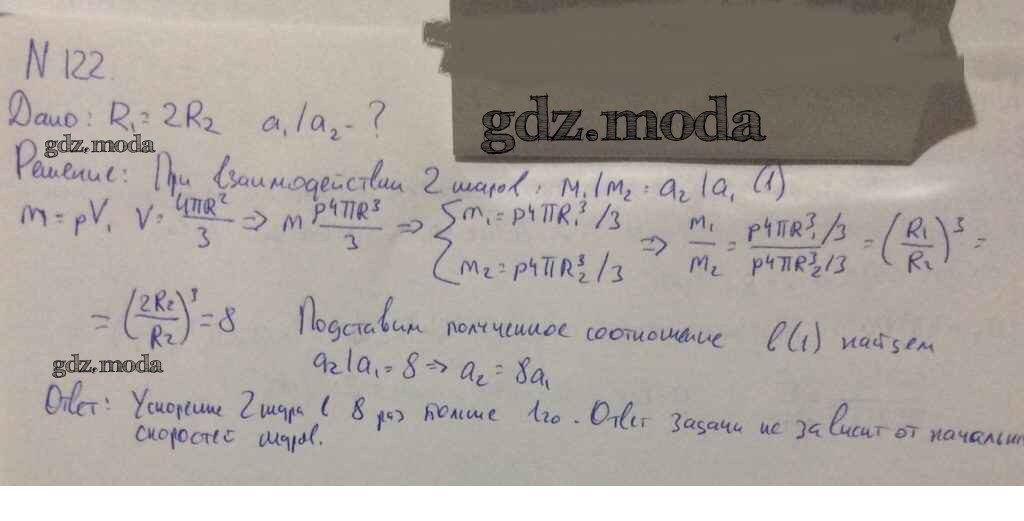 N 122.
gdz.moda
Дано: R₁ = 2R₂ a₁/a₂ - ?
gdz.moda
Решение: При взаимодействии 2 шаров: m₁/m₂ = a₂/a₁ (1)
m = ρV, V = 4πR²/3 ⇒ m ρ4πR³/3 ⇒ { m₁ = ρ4πR₁³/3 m₂ = ρ4πR₂³/3 ⇒ m₁/m₂ = ρ4πR₁³/3 / ρ4πR₂³/3 = (R₁/R₂)³ =
= (2R₂/R₂)³ = 8 Подставим полученное соотношение в (1) найдем
gdz.moda
a₂/a₁ = 8 ⇒ a₂ = 8a₁
Ответ: Ускорение 2 шара в 8 раз больше 1го. Ответ задачи не зависит от начальн
скоростей шаров.